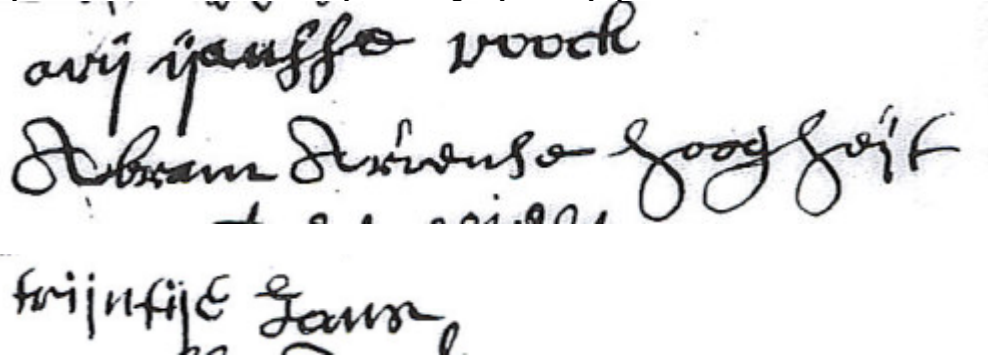 arij ijansse roock
Abram Ariense hoogheijt
trijntije Jans